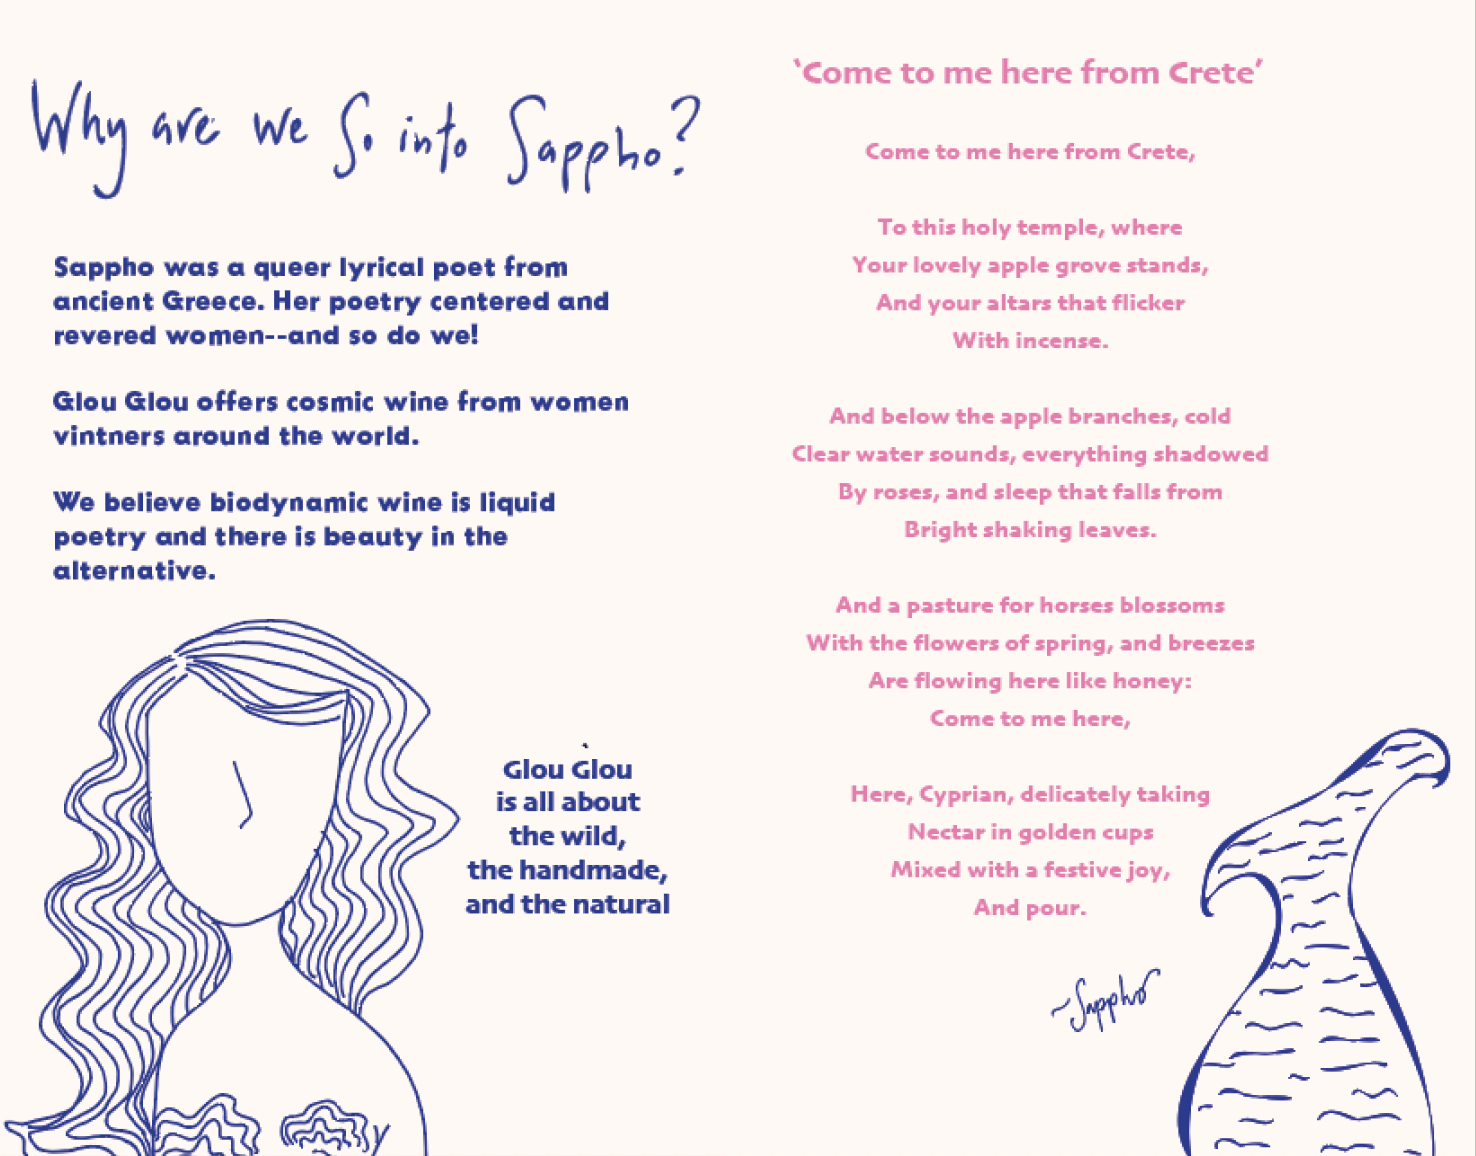 Why are we so into Sappho?
Sappho was a queer lyrical poet from
ancient Greece. Her poetry centered and
revered women--and so do we!
Glou Glou offers cosmic wine from women
vintners around the world.
We believe biodynamic wine is liquid
poetry and there is beauty in the
alternative.
Glou Glou
is all about
the wild,
the handmade,
and the natural
‘Come to me here from Crete’
Come to me here from Crete,
To this holy temple, where
Your lovely apple grove stands,
And your altars that flicker
With incense.
And below the apple branches, cold
Clear water sounds, everything shadowed
By roses, and sleep that falls from
Bright shaking leaves.
And a pasture for horses blossoms
With the flowers of spring, and breezes
Are flowing here like honey:
Come to me here,
Here, Cyprian, delicately taking
Nectar in golden cups
Mixed with a festive joy,
And pour.
~Sappho